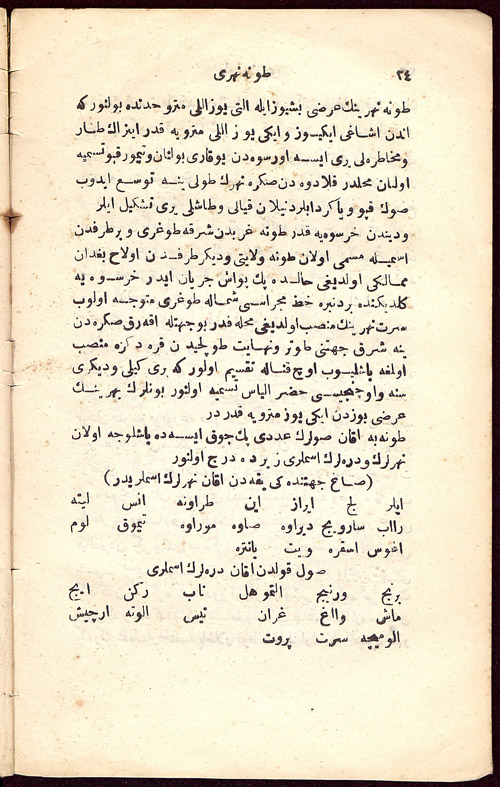 ٢٤ طونه نهری
طونه نهرینك عرضی بشیوز ایله التی یوز اللی مترو حدنده بولنور كه
اندن اشاغی ایكیوز و ایكی یوز اللی مترو یه قدر اینر اك طار
و مخاطره لی یری ایسه اورسوه دن یوقاری بولنان و تیمور قپو تسمیه
اولنان محلدر فلادوه دن صكره نهرك طولی ینه توسع ایدوب
صوك قپو ویا كردابلر دنیلان قیالی و طاشلی یری تشكیل ایلر
و دیندن خرسوه یه قدر طونه غربدن شرقه طوغری و بر طرفدن
اسمیله مسمی اولان طونه ولایتی و دیكر طرفدن اولاح بغدان
ممالكی اولدیغی حالده پك یواش جریان ایدر خرسوه یه
كلدیكنده بردنبره خط مجراسی شماله طوغری متوجه اولوب
سرت نهرینك منصب اولدیغی محله قدر بو جهتله اقه رق صكره دن
ینه شرق جهتنی طوتر و نهایت طولچیدن قره دكزه منصب
اولمغه باشلیوب اوچ قناله تقسیم اولور كه بری كیلی و دیكری
سنه و اوچنجیسی حضر الیاس تسمیه اولنور بونلرك بهرینك
عرضی یوزدن ایكی یوز مترو یه قدر در
طونه یه اقان صولرك عددی پك چوق ایسه ده باشلوجه اولان
نهرلرك و دره لرك اسملری زیرده درج اولنور
(صاغ جهتنده كی یقه دن اقان نهرلرك اسملریدر)
ایلر لج ایراز این طراونه انس ایته
رااب سارویج دیراوه صاوه موراوه تیموق لوم
اغوس اسقره ویت یانتره
صول قولدن اقان دره لرك اسملری
برنج ورنیج التموهل ناب ركن ایبج
ماش وااغ غران تیس الوته ارجیش
الومیچه سرت پروت